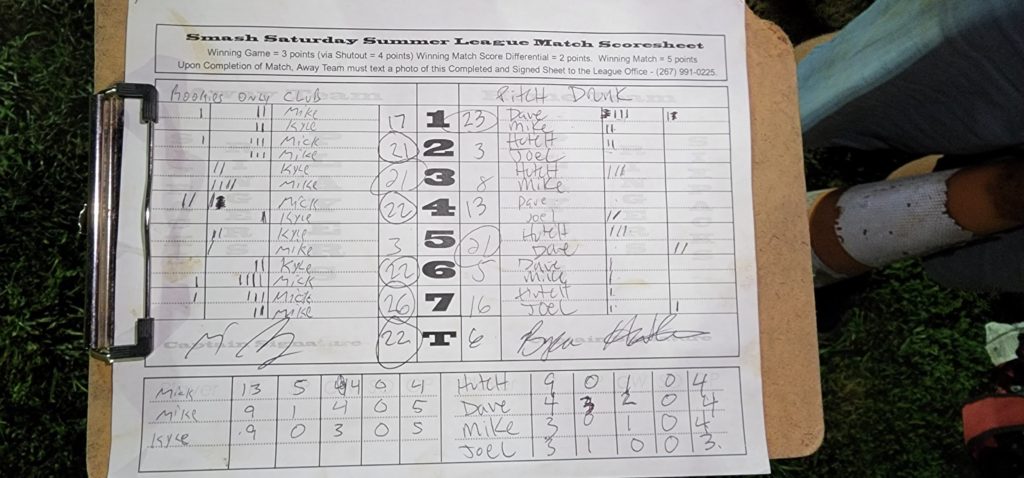 Smash Saturday Summer League Match Scoresheet
Winning Game = 3 points (via Shutout = 4 points) Winning Match Score Differential = 2 points. Winning Match = 5 points
Upon Completion of Match, Away Team must text a photo of this Completed and Signed Sheet to the League Office - (267) 991-0225.
Rookies Only Club Pitch Drunk
Mike 17 1 23 Dave
Kyle Mike
Mick 21 2 3 Hutch
Mike Joel
Kyle 21 3 8 Hutch
Mike Mike
Mick 22 4 13 Dave
Kyle Joel
Kyle 3 5 21 Hutch
Mike Dave
Kyle 22 6 5 Dave
Mick Mike
Mick 26 7 16 Hutch
Mike Joel
22 T 6
Captain Signature
Mick 13 5 4 0 4 Hutch 9 0 1 0 4
Mike 9 1 4 0 5 Dave 4 3 2 0 4
Kyle 9 0 3 0 5 Mike 3 0 1 0 4
Joel 3 1 0 0 3